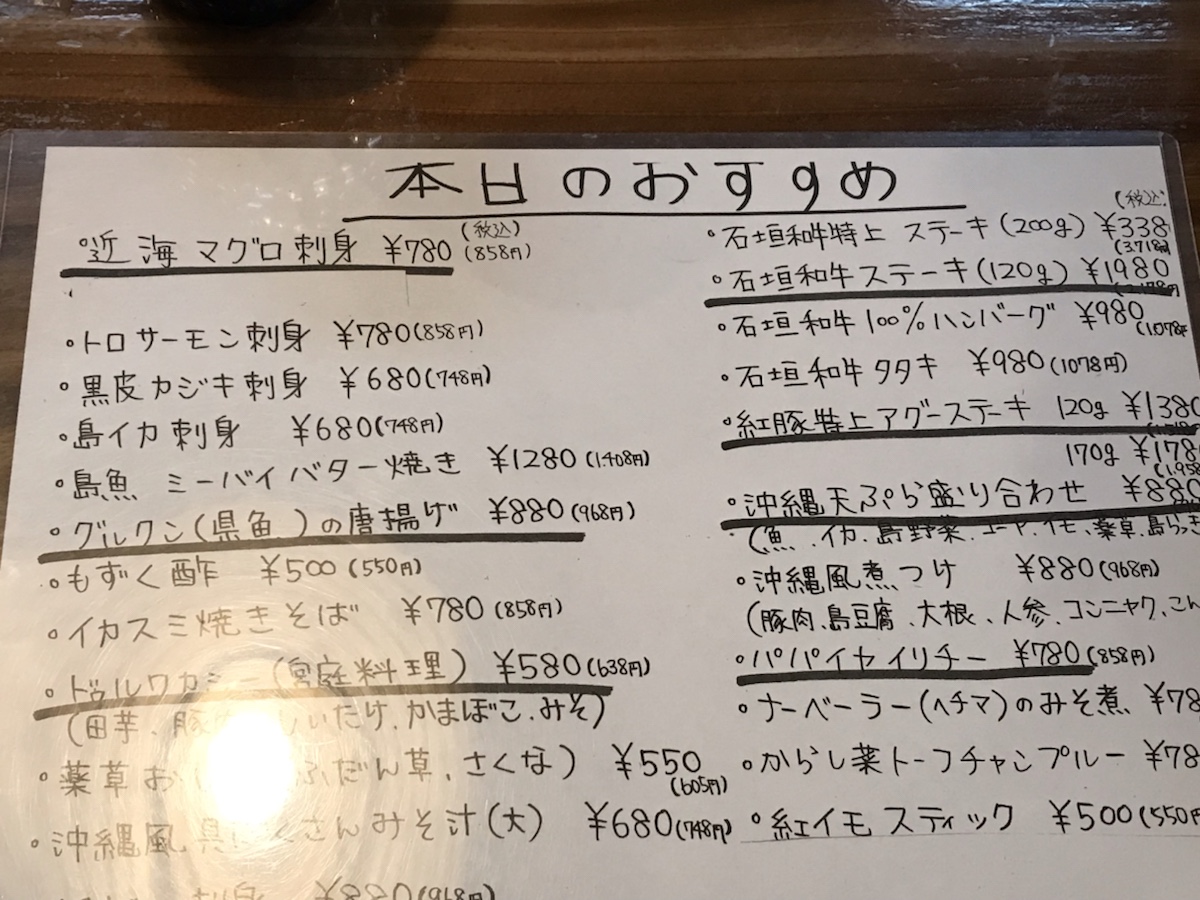 本日のおすすめ
(税込)
近海マグロ刺身 ¥780 (858円)
・トロサーモン刺身 ¥780(858円)
・黒皮カジキ刺身 ¥680(748円)
・島イカ刺身 ¥680(748円)
・島魚 ミーバイバター焼き ¥1280(1.408円)
・グルクン(県魚)の唐揚げ ¥880(968円)
・もずく酢 ¥500(550円)
・イカスミ焼きそば ¥780(858円)
・ドゥルワカシー(宮庭料理) ¥580(638円)
(田芋、豚肉、しいたけ、かまぼこ、みそ)
・薬草お ふだん草、さくな) ¥550
(605円)
・沖縄風具だくさんみそ汁(大) ¥680(748円)
¥880(968円)
(税込)
・石垣和牛特上 ステーキ(200g) ¥338
(3.718円
・石垣和牛ステーキ(120g) ¥1980
・石垣和牛100%ハンバーグ ¥980
(1078円
・石垣和牛タタキ ¥980(1078円)
・紅豚特上アグーステーキ 120g ¥1380
170g ¥178
(1.958
・沖縄天ぷら盛り合わせ ¥880
(魚、イカ、島野菜、ゴーヤ、イモ、薬草、島らっき
・沖縄風煮つけ ¥880(968円)
(豚肉、島豆腐、大根、人参、コンニャク、こん
・パパイヤイリチー ¥780(858円)
・ナーベーラー(ヘチマ)のみそ煮 ¥78
・からし菜トーフチャンプルー ¥78
・紅イモスティック ¥500(550円)